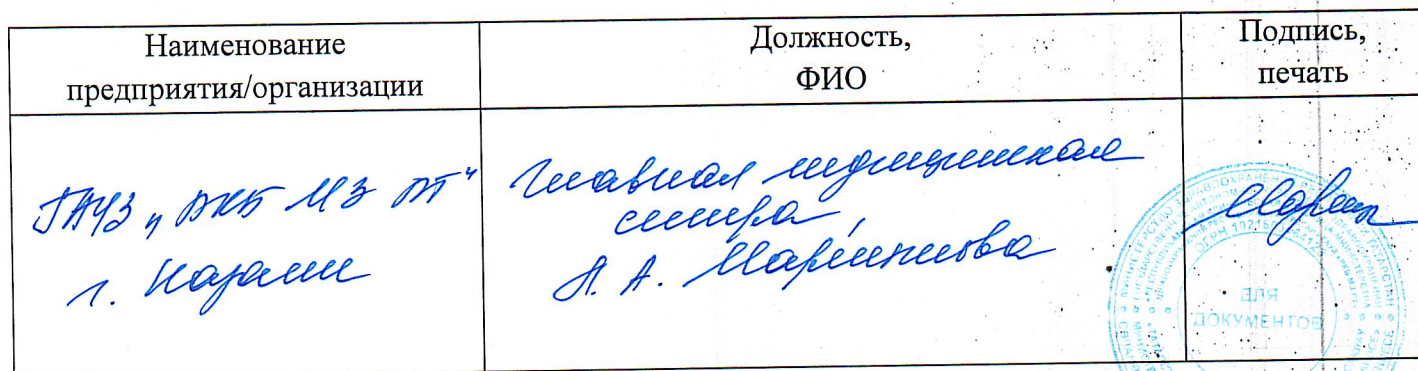 Наименование
предприятия/организации
Должность,
ФИО
Подпись,
печать
ГАУЗ „РКБ МЗ РТ“
г. Казани
Главная медицинская
сестра,
А.
ОГРН
ДЛЯ
ДОКУМЕНТОВ